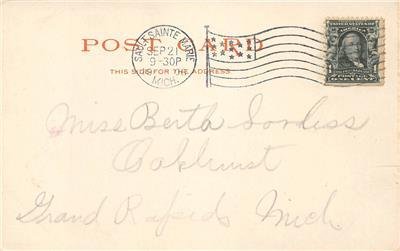 POST CARD
SAULT SAINTE MARIE
SEP 21
9-30P
MICH.
THIS SIDE FOR THE ADDRESS
Miss Bertha
Oakhurst
Grand Rapids Mich